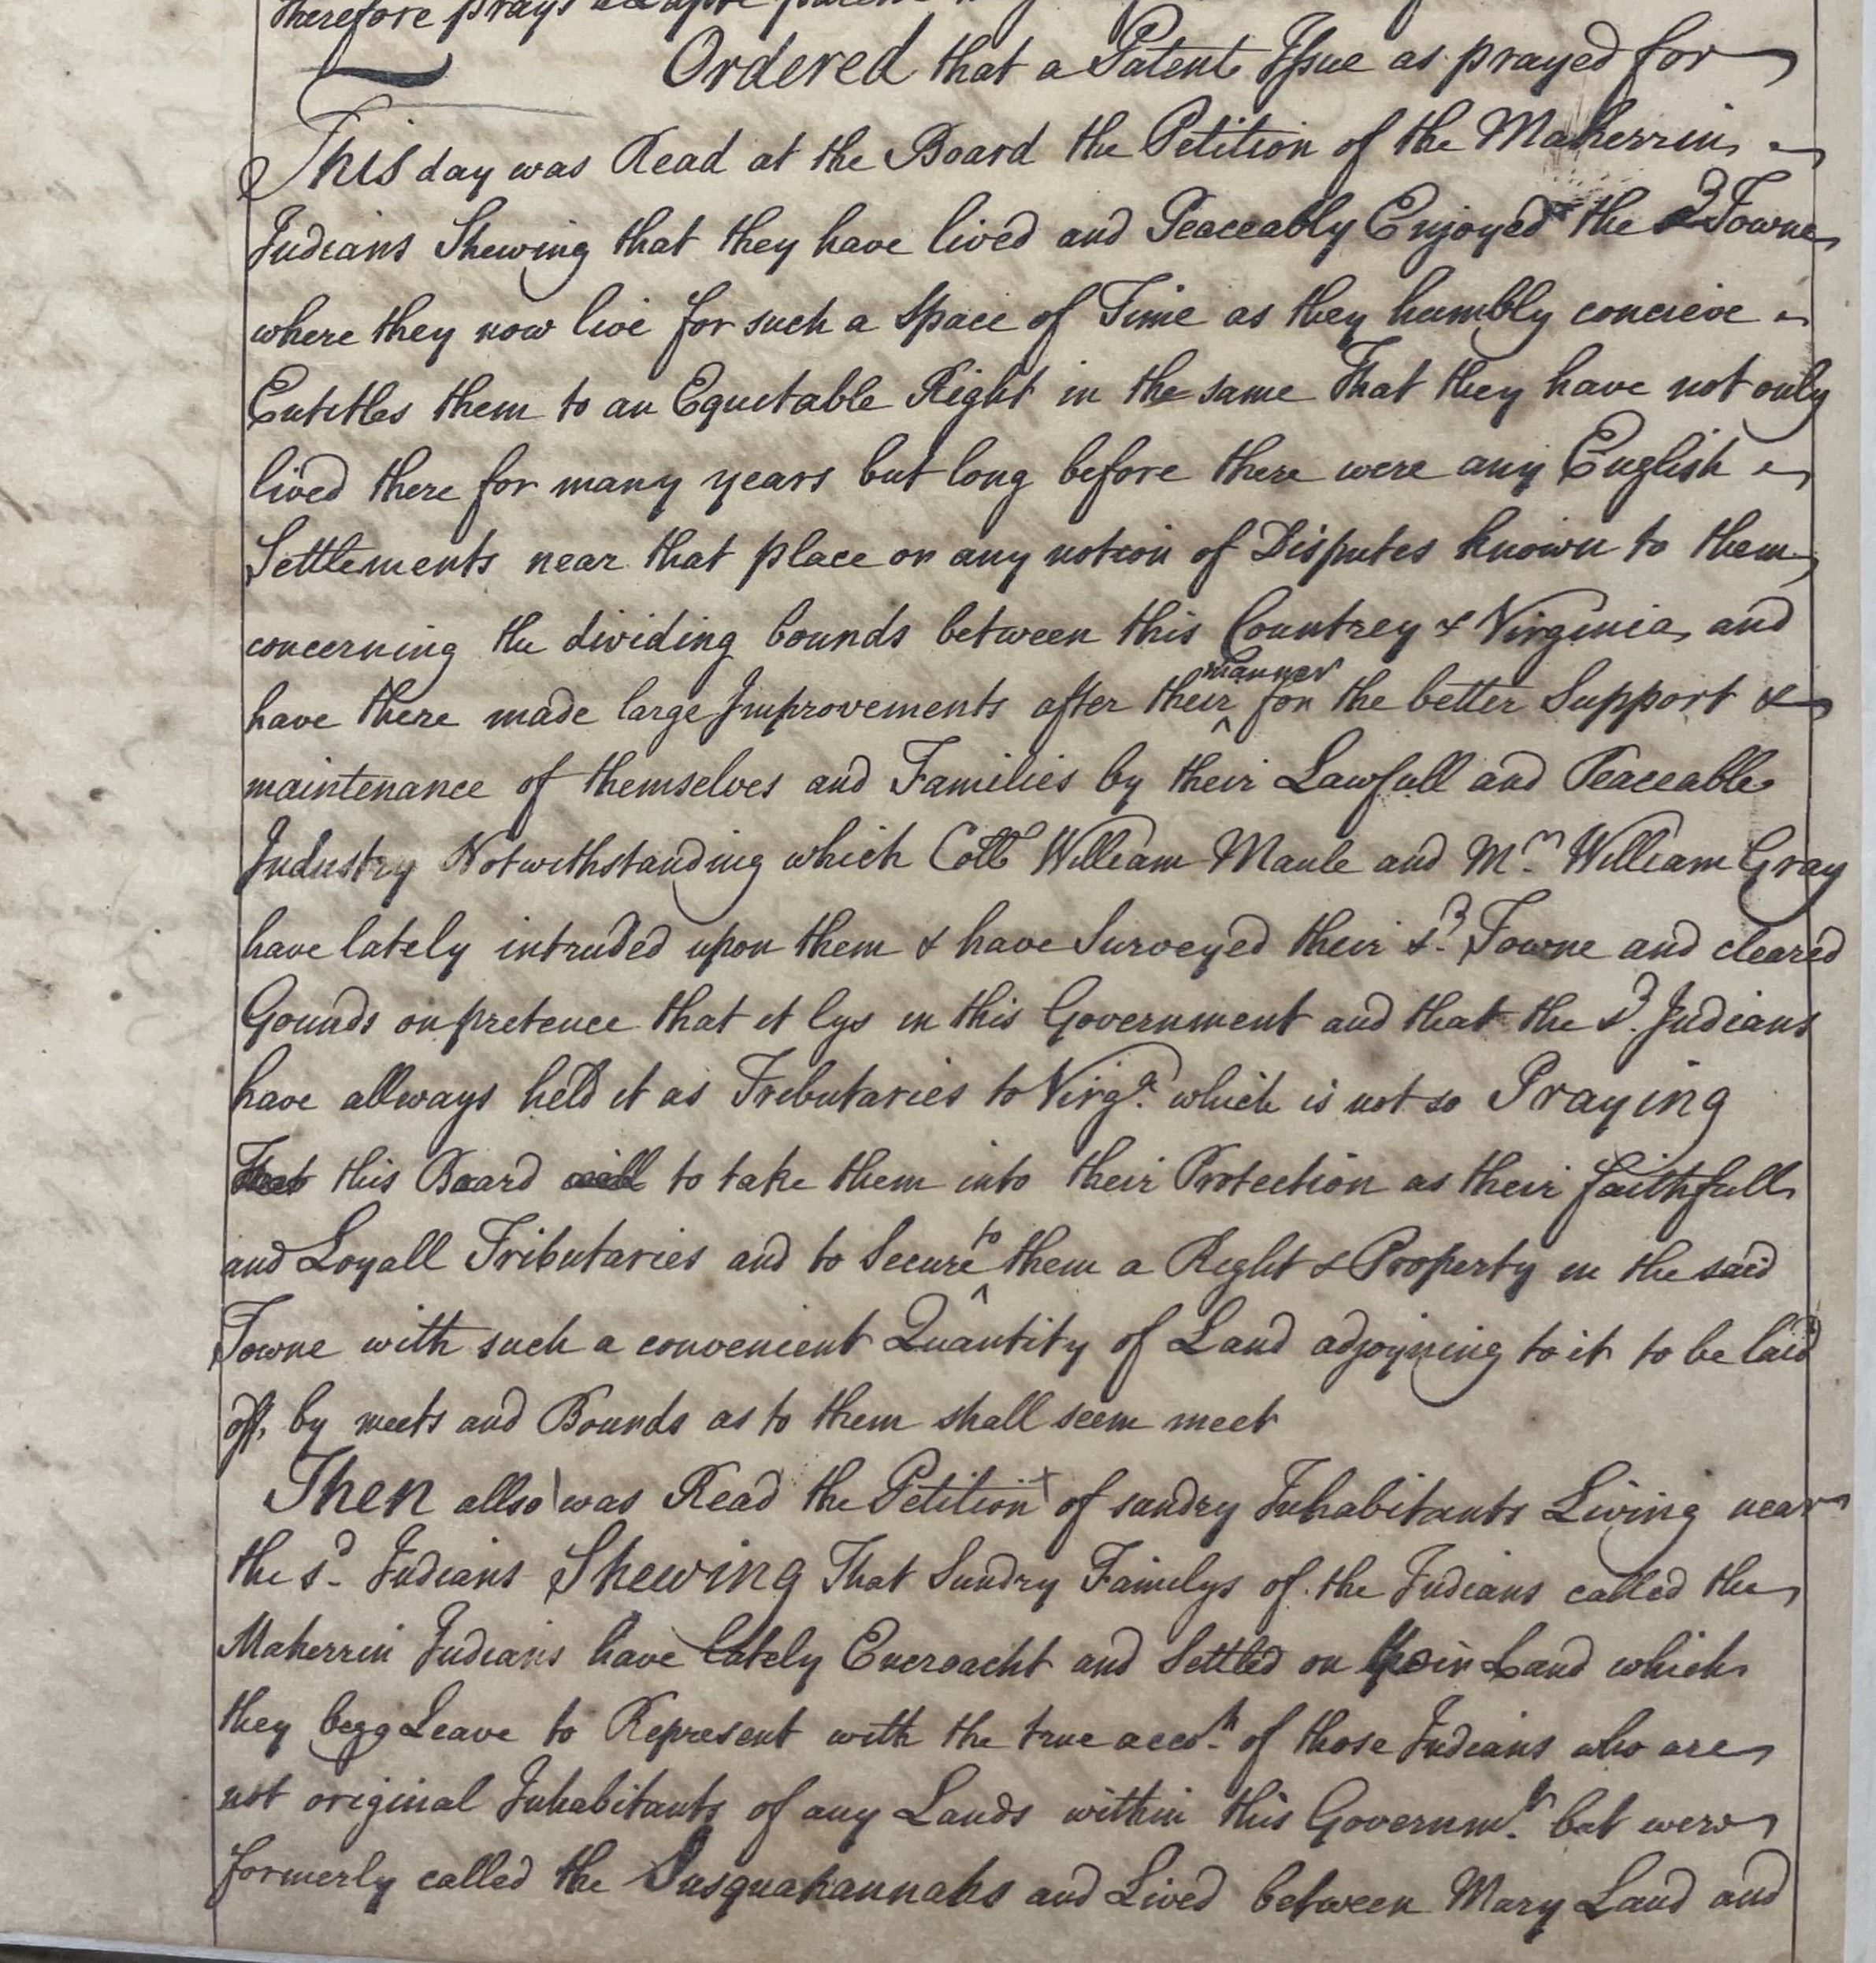 therefore prays
Ordered that a Patent Issue as prayed for
This day was Read at the Board the Petition of the Maherrin
Indians Shewing that they have lived and Peaceably Enjoyed the sd Towne
where they now live for such a Space of Time as they humbly concieve
Entitles them to an Equitable Right in the same That they have not only
lived there for many years but long before there were any English
Settlements near that place or any notion of Disputes known to them
concerning the dividing bounds between this Countrey & Virginia and
have there made large Improvements after their manner for the better Support &
maintenance of themselves and Families by their Lawfull and Peaceable
Industry Notwithstanding which Coll William Maule and Mr. William Gray
have lately intruded upon them & have Surveyed their sd. Towne and cleared
Gounds on pretence that it lys in this Government and that the sd. Indians
have allways held it as Tributaries to Virga. which is not so Praying
That this Board will to take them into their Protection as their faithfull
and Loyall Tributaries and to Secure to them a Right & Property in the said
Towne with such a convenient Quantity of Land adjoyning to it to be laid
off by meets and Bounds as to them shall seem meet
Then allso was Read the Petition of sundry Inhabitants Living near
the sd. Indians Shewing That Sundry Familys of the Indians called the
Maherrin Indians have lately Encroacht and Settled on their Land which
they begg Leave to Represent with the true accot. of those Indians who are
not original Inhabitants of any Lands within this Governmt. but were
formerly called the Susquahannahs and Lived between Mary Land and